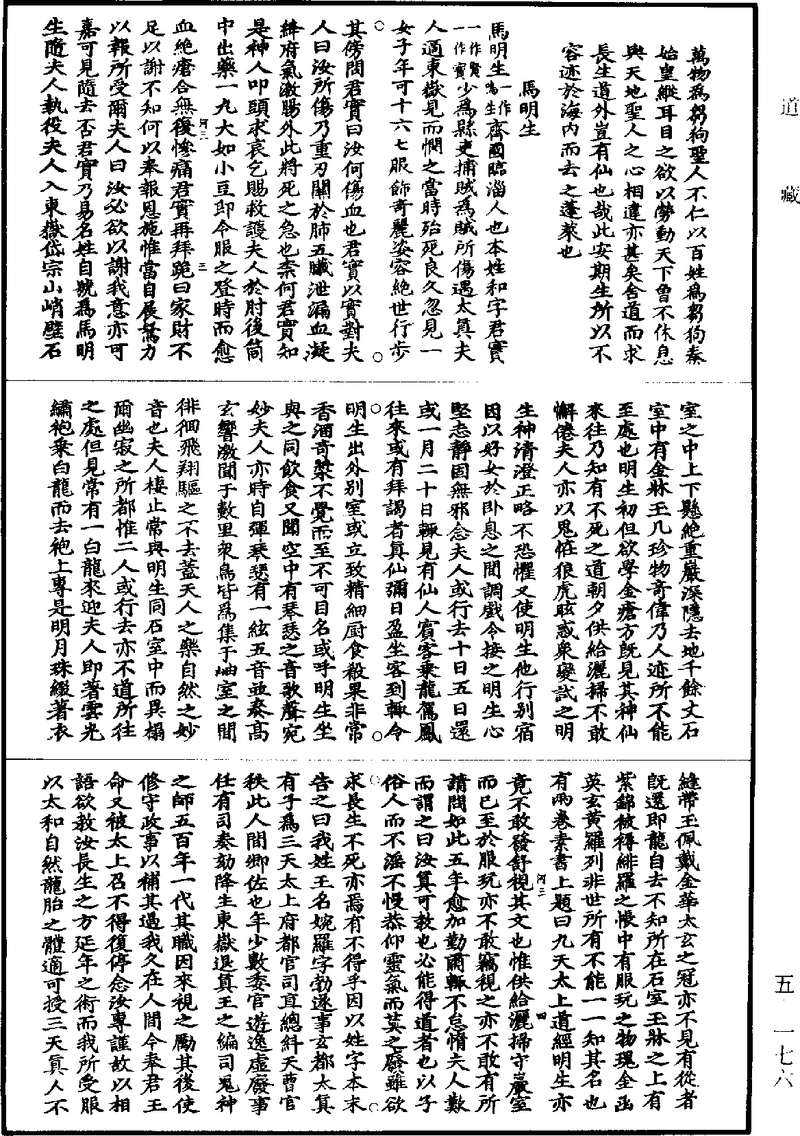 道藏
萬物爲芻狗聖人不仁以百姓爲芻狗秦
始皇縱耳目之欲以勞動天下曾不休息
與天地聖人之心相違亦甚矣舍道而求
長生道外豈有仙也哉此安期生所以不
容迹於海内而去之蓬萊也
馬明生
馬明生一作鳴生齊國臨淄人也本姓和字君實
一作賢一作寶少爲縣吏捕賊爲賊所傷遇太真夫
人適東嶽見而憫之當時殆死良久忽見一
女子年可十六七服飾奇麗姿容絕世行步
其傍問君實曰汝何傷血也君實以實對夫
人曰汝所傷乃重刃關於肺五臟泄漏血凝
絳府氣激腸外此將死之急也柰何君實知
是神人叩頭求哀乞賜救護夫人於肘後筒
中出藥一丸大如小豆即令服之登時而愈
血絕瘡合無復慘痛君實再拜跪曰家財不
足以謝不知何以奉報恩施惟當自展駑力
以報所受爾夫人曰汝必欲以謝我意亦可
嘉可見隨去否君實乃易名姓自號爲馬明
生隨夫人執役夫人入東嶽岱宗山峭壁石
河三
三
室之中上下懸絕重巖深隱去地千餘丈石
室中有金牀玉几珍物奇偉乃人迹所不能
至處也明生初但欲學金瘡方既見其神仙
來往乃知有不死之道朝夕供給灑掃不敢
懈倦夫人亦以鬼怪狼虎眩惑衆變試之明
生神清澄正略不恐懼又使明生他行别宿
因以好女於卧息之間調戲令接之明生心
堅志靜固無邪念夫人或行去十日五日還
或一月二十日輒見有仙人賓客乘龍駕鳳
往來或有拜謁者真仙彌日盈坐客到輒令
明生出外别室或立致精細厨食殽果非常
香酒奇漿不覺而至不可目名或呼明生坐
與之同飲食又聞空中有琴瑟之音歌聲宛
妙夫人亦時自彈琴瑟有一絃五音並奏高
玄響激聞于數里衆鳥皆爲集于岫室之間
徘徊飛翔驅之不去蓋天人之樂自然之妙
音也夫人棲止常與明生同石室中而異榻
爾幽寂之所都惟二人或行去亦不道所往
之處但見常有一白龍來迎夫人即著雲光
繡袍乘白龍而去袍上專是明月珠綴著衣
縫帶玉佩戴金華太玄之冠亦不見有從者
既還即龍自去不知所在石室玉牀之上有
紫錦被褥緋羅之帳中有服玩之物瑰金函
奩玄黄羅列非世所有不能一一知其名也
有兩卷素書上題曰九天太上道經明生亦
竟不敢發舒視其文也惟供給灑掃守巖室
而已至於服玩亦不敢竊視之亦不敢有所
請問如此五年愈加勤肅輒不怠惰夫人歎
而謂之曰汝真可教也必能得道者也以子
俗人而不淫不慢恭仰靈氣而莫之廢雖欲
求長生不死亦焉有不得乎因以姓字本末
告之曰我姓王名婉羅字勃遂事玄都太真
有子爲三天太上府都官司直總糾天曹官
秩此人間卿佐也年少數委官遊逸虚廢事
任有司奏劾降主東嶽退真王之編司鬼神
之師五百年一代其職因來視之勵其後使
修守政事以補其過我久在人間今奉君王
命又被太上召不得復停念汝專謹故以相
語欲教汝長生之方延年之術而我所受服
以太和自然龍胎之體適可授三天真人不
河三
四
五·一七六